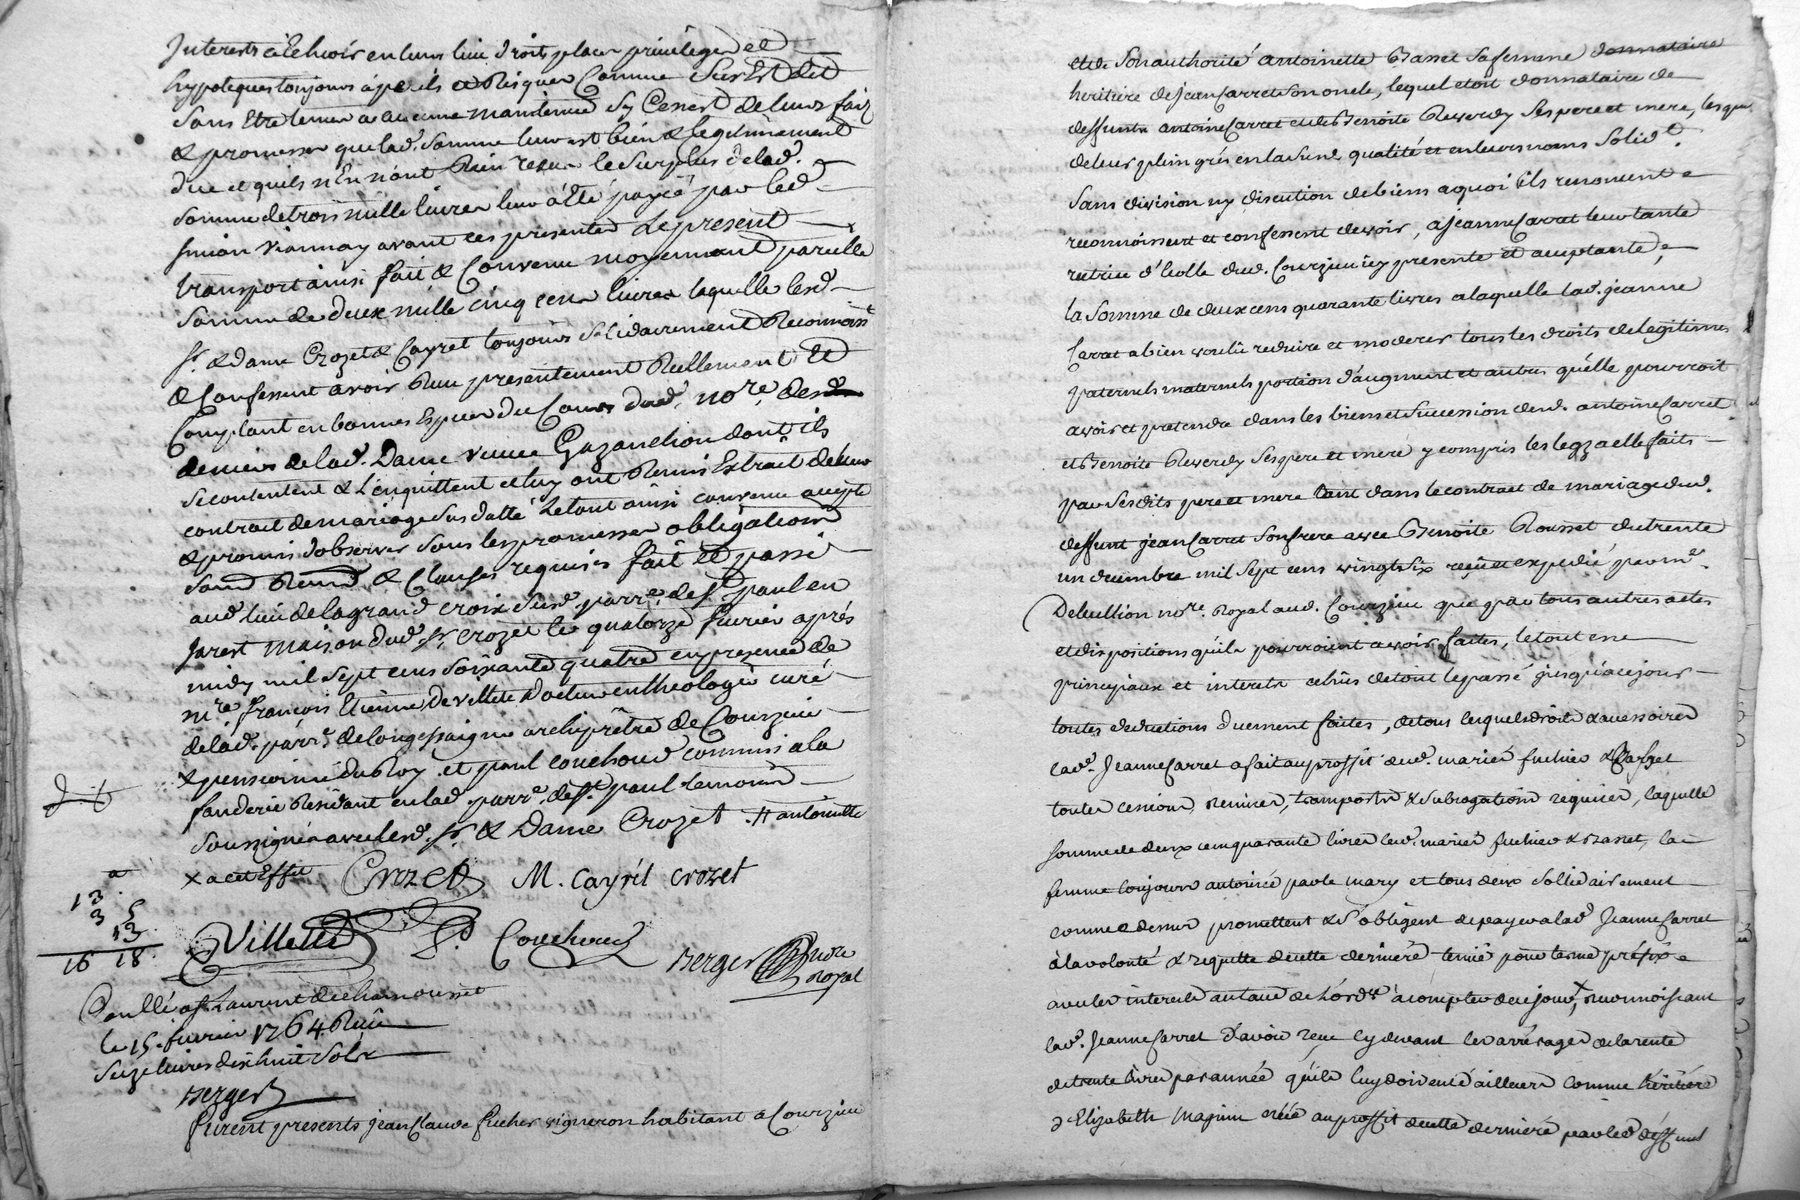 Interests à Echeoir en leurs lieu droits places privileges et
hypoteques toujours à perils et Risques Comme Sus Est dit
Sans Etre tenus a aucune maintenue Sy Ce nest de leurs faix
& promesses que lad. Somme leur est bien & legitimement
due et quils n'En n'ont Rien reçu le Surplus de lad.
Somme de trois mille livres leur a été payée par led.
Simon Viannay avant ces presentes Le present
transport ainsi fait & Convenu moyennant pareille
Somme de deux mille cinq cens livres laquelle lesd.
Sr. & dame Crozet & Cayret toujours Solidairement Reconnoiss.t
& Confessent avoir Reçu presentement Reellement Et
Comptant en bonnes Especes du Cours dud. no.re des
deniers de lad. Dame veuve Gazanchon dont ils
se contentent & L'enquittent et luy ont Remis Extrait de leur
contract de mariage Sus datté Le tout ainsi convenu accepté
& promis d'observer Sous les promesses obligations
Soub. Renon. & Clauses requises fait Et passé
aud. lieu de la grand croix Susd. parr.e de St. paul en
Jarest maison dud. Sr. Crozet le quatorze fevrier après
midy mil Sept cens Soixante quatre en presence de
m.re françois Etienne De villette Docteur en theologie curé
de lad. parr.e de longessaigne archiprêtre de Courzieu
& pensionné du Roy et paul couchoud commis a la
fonderie Residant en lad. parr.e de St. paul temoins
Soussignés avec lesd. Sr. & Dame Crozet # antoinette
x a cet Effet Crozet M. Cayrét crozet
13
3 5
13
16 18
Villette Couchoud
Berger no.re Royal
Controllé a St Laurent de chamousset
le 15. fevrier 1764 Reçu
Seize livres dix huit Sols
Berger
furent presents jean Claude fucher vigneron habitant a Courzieu
et de Son authorité Antoinette Basset Sa femme donnataire
heritiere de jean Carret Son oncle, lequel etoit donnataire de
deffunts antoine Carret et de Benoite Reverdy Ses pere et mere, lesquels
de leur plein gré en lasusd. qualité et en leurs noms Solid.t
Sans division ny discution de biens a quoi ils renoncent
reconnoissent et confessent devoir, a Jeanne Carret leur tante
rectrice d'Ecolle dud. Courzieu icy presente et acceptante,
la Somme de deux cens quarante livres a laquelle lad. jeanne
Carret a bien voulu reduire et moderer tous les droits de legitimes
paternels maternels portion d'augment et autres qu'elle pourroit
avoir et pretendre dans les biens et Succession dud. antoine Carret
et Benoite Reverdy Ses pere et mere y compris les legz a elle faits
par Sesdits pere et mere tant dans le contract de mariage dud.
deffunt jean Carret Son frere avec Benoite Rousset du trente
un decembre mil Sept cens vingt Six reçu et expedié par m.e
Delullion no.re Royal aud. Courzieu que par tous autres actes
et dispositions qu'ils pourroient avoir faites, le tout en
principaux et interets echûs de tout le passé jusqu'à ce jour
toutes deductions duement faites, de tous lesquels droits & accessoires
lad.e Jeanne Carret a fait au proffit dud. mariés fucher & Basset
toutes cessions, remises, transports & Subrogations requises, laquelle
Somme de deux cens quarante livres lesd. mariés fucher & Basset, la
femme toujours autorisée par le mary et tous deux Sollidairement
comme dessus promettent & S'obligent de payer a lad.e Jeanne Carret
à la volonté & requette de cette derniere tenüe pour terme préfix
avec les interets au taux de L'ord.ce à compter de ce jour, x reconnoissant
lad.e Jeanne Carret d'avoir reçu cy devant les arrérages de la rente
de trente livres par année qu'ils luy doivent d'ailleurs comme héritiere
d'Elizabeth Magnin créée au proffit de cette derniere par led. deffunt